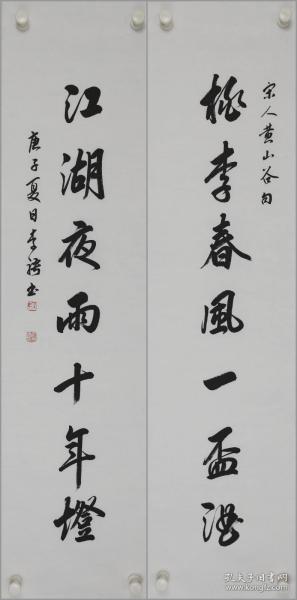 宋人黄山谷句
桃李春風一盃酒
江湖夜雨十年燈
庚子夏日李
书
孔夫子旧书网